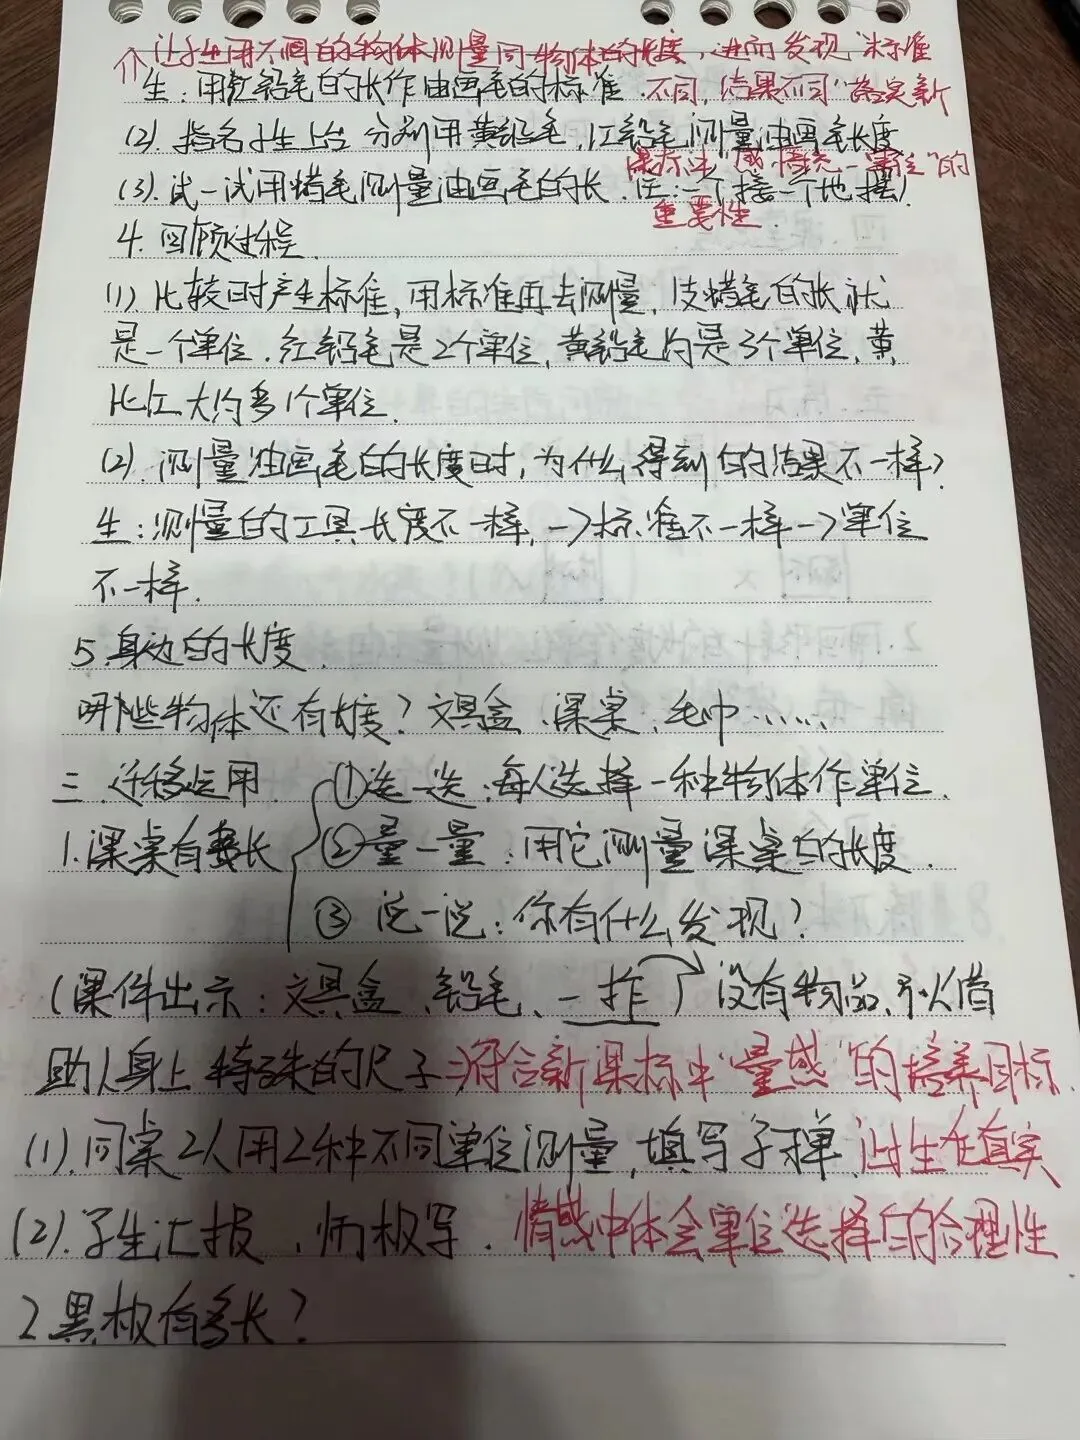 让学生用不同的物体测量同一物体的长度,进而发现"标准
生:用红铅笔的长作油画笔的标准.
不同,结果不同"落实新
(2).指名学生上台分别用黄铅笔,红铅笔测量油画笔长度
课标中"感悟统一单位"的
(3).试一试用蜡笔测量油画笔的长.(注:一个接一个地摆)
重要性.
4.回顾过程.
(1)比较时产生标准,用标准再去测量,1支蜡笔的长就
是一个单位.红铅笔是2个单位,黄铅笔约是3个单位,黄
比红大约多1个单位.
(2).测量油画笔的长度时,为什么得到的结果不一样?
生:测量的工具长度不一样,→标准不一样→单位
不一样.
5.身边的长度.
哪些物体还有长度?文具盒、课桌、毛巾……
三.迁移运用
①选一选:每人选择一种物体作单位.
1.课桌有多长
②量一量:用它测量课桌的长度.
③说一说:你有什么发现?
(课件出示:文具盒、铅笔、一拃→没有物品,可以借
助人身上特殊的尺子 符合新课标中"量感"的培养目标.
(1).同桌2人用2种不同单位测量,填写学单.让生在真实
(2).学生汇报,师板写.情感中体会单位选择的合理性
2黑板有多长?